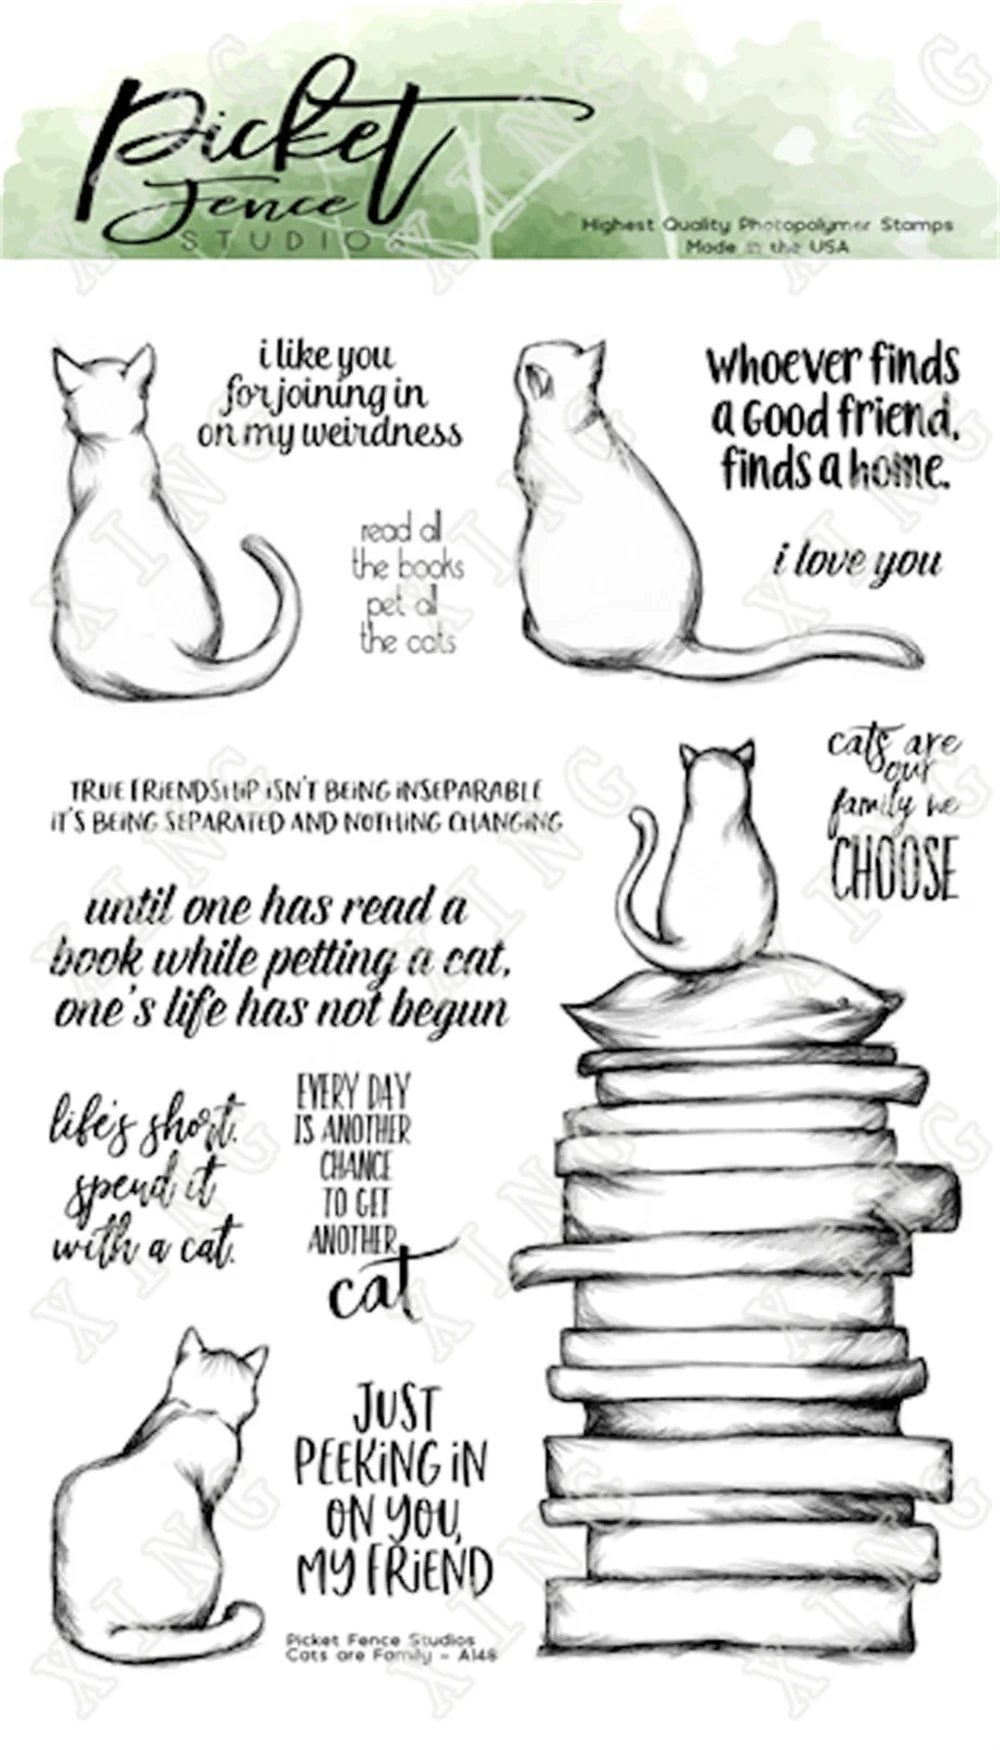 Picket
Fence
STUDIOS
Highest Quality Photopolymer Stamps
Made in the USA
i like you
for joining in
on my weirdness
whoever finds
a Good friend,
finds a home.
read all
the books
pet all
the cats
i love you
cats are
our
family we
CHOOSE
TRUE FRiENDSHiP iSN'T BEiNG iNSEPARABLE
iT'S BEiNG SEPARATED AND NOTHiNG CHANGiNG
until one has read a
book while petting a cat,
one's life has not begun
life's short.
spend it
with a cat.
EVERY DAY
IS ANOTHER
CHANCE
TO GET
ANOTHER
cat
JUST
PEEKiNG iN
ON YOU,
MY FRiEND
Picket Fence Studios
Cats are Family - A148
XING
XING
XING
XING
XING
XING
XING
XING
XING
XING
XING
XING